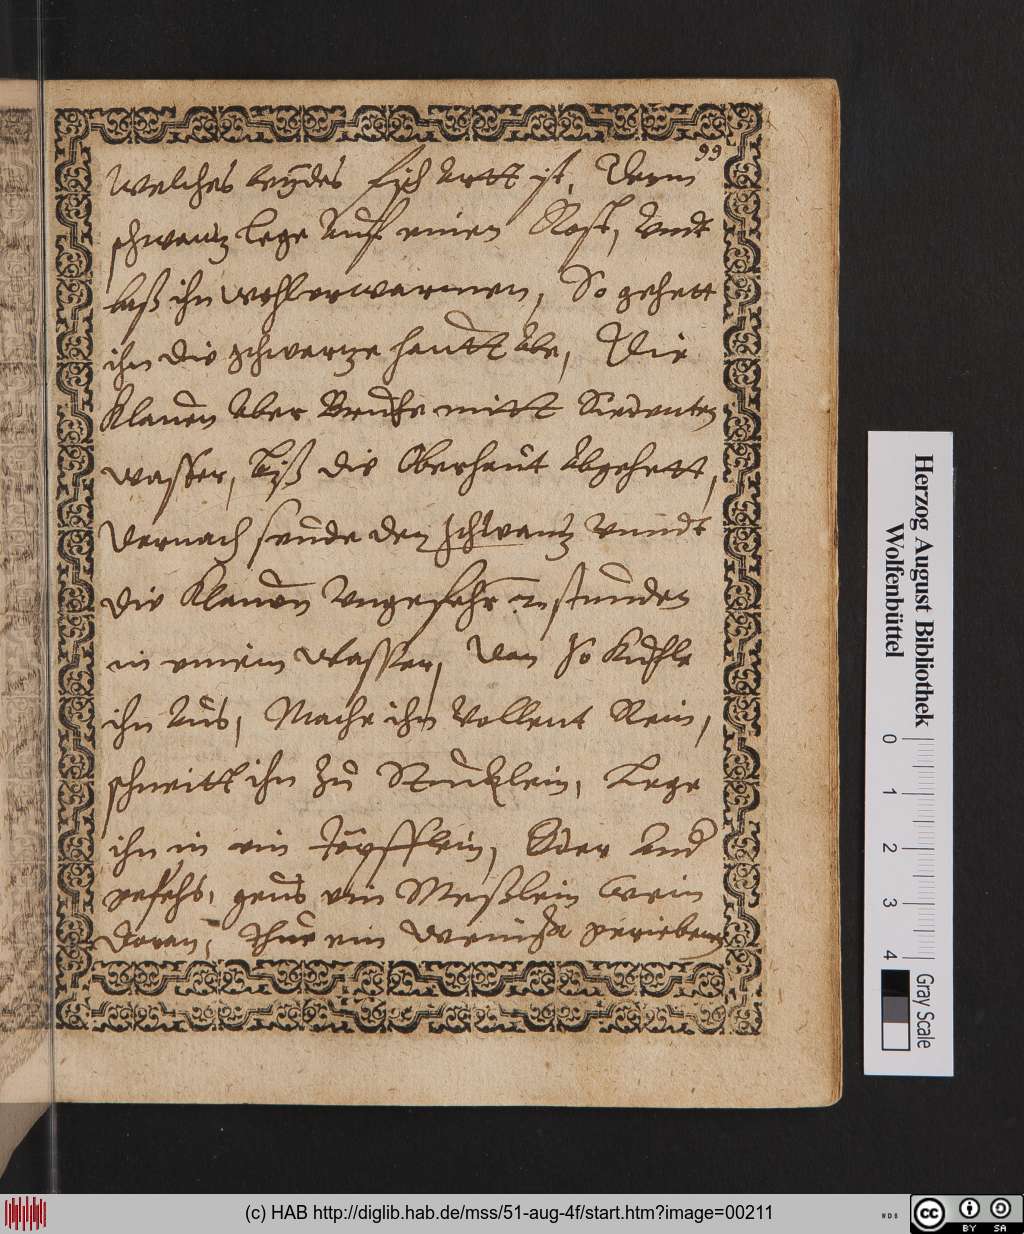 99
Welches beÿdes fisch Artt ist, Denn
schwantz lege Auf einen Rost, Vndt
laß ihn wohl erwarmen, So gehett
ihn die schwartze hautt Abe, Die
Klauen Aber Bruhe mitt Siedenten
wasser, biß die Oberhaut Abgehett,
Dernach seude den schwantz Vnndt
die Klauen Vngefehr 2 stunden
in einem Wasser, Dan so Kuhle
ihn Aus, Mache ihn Vollent Rein,
schneitt ihn Zu Stucklein, Lege
ihn in ein Töpfflein, Oder And
gefehs, geus ein Meßlein Wein
doran, Thue ein wenig geriebens
Herzog August Bibliothek
Wolfenbüttel
0 1 2 3 4
Gray Scale
(c) HAB http://diglib.hab.de/mss/51-aug-4f/start.htm?image=00211
WDB
cc BY SA